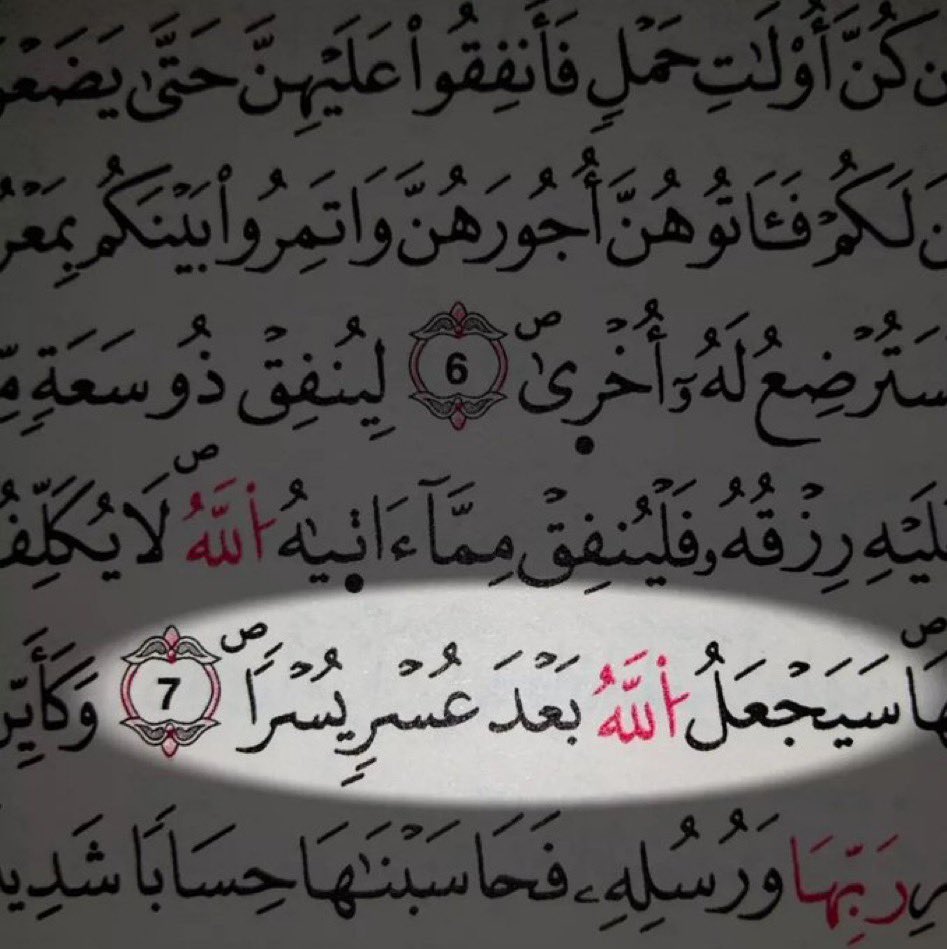 كُنَّ أُوْلَٰتِ حَمْلٍ فَأَنفِقُواْ عَلَيْهِنَّ حَتَّىٰ يَضَعْنَ
لَكُمْ فَـَٔاتُوهُنَّ أُجُورَهُنَّ وَاتَمِرُواْ بَيْنَكُم بِمَعْرُ
سَتُرْضِعُ لَهُۥٓ أُخْرَىٰ ص 6 لِيُنفِقْ ذُو سَعَةٍ مِّ
عَلَيْهِ رِزْقُهُۥ فَلْيُنفِقْ مِمَّآ ءَاتَىٰهُ اللَّهُ ص لَا يُكَلِّفُ
هَا ص سَيَجْعَلُ اللَّهُ بَعْدَ عُسْرٍ يُسْرًا ص 7 وَكَأَيِّن
رِ رَبِّهَا وَرُسُلِهِۦ فَحَاسَبْنَٰهَا حِسَابًا شَدِيد